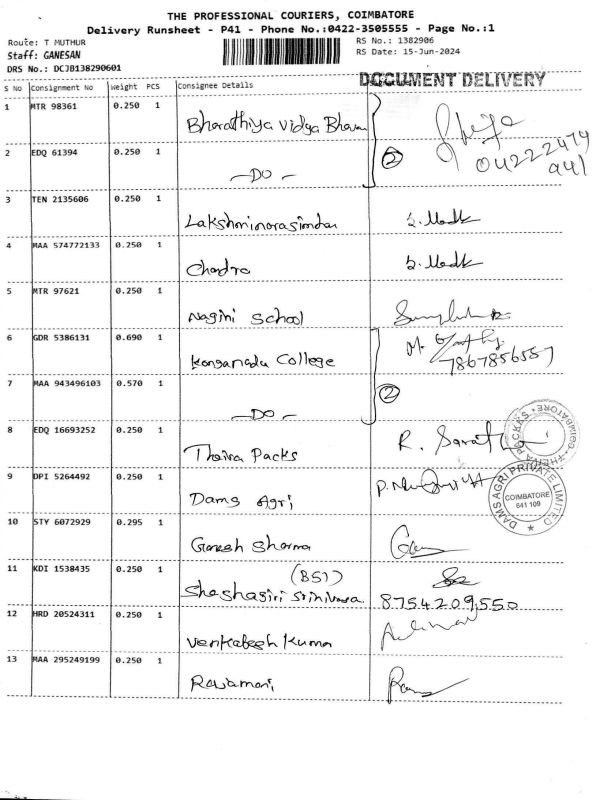 THE PROFESSIONAL COURIERS, COIMBATORE
Delivery Runsheet - P41 - Phone No.:0422-3505555 - Page No.:1
Route: T MUTHUR RS No.: 1382906
Staff: GANESAN RS Date: 15-Jun-2024
DRS No.: DCJB138290601
DOCUMENT DELIVERY
S No Consignment No Weight PCS Consignee Details
1 MTR 98361 0.250 1
Bharathiya Vidya Bhavan
04222479
941
2 EDQ 61394 0.250 1 2
-DO-
3 TEN 2135606 0.250 1
Lakshminarasimhan
4 MAA 574772133 0.250 1
Chandra
5 MTR 97621 0.250 1
Nagini School
6 GDR 5386131 0.690 1
Konganadu College 7867856557
7 MAA 943496103 0.570 1 2
-DO-
8 EDQ 16693252 0.250 1
Thaira Packs R.
9 DPI 5264492 0.250 1
Dams Agri
DAMS AGRI PRIVATE LIMITED
COIMBATORE
641 109
10 STY 6072929 0.295 1
Ganesh Sharma
11 KDI 1538435 0.250 1 (BSI)
Sheshagiri Srinivasa 8754209550
12 HRD 20524311 0.250 1
Venkatesh Kumar
13 MAA 295249199 0.250 1
Rajamani